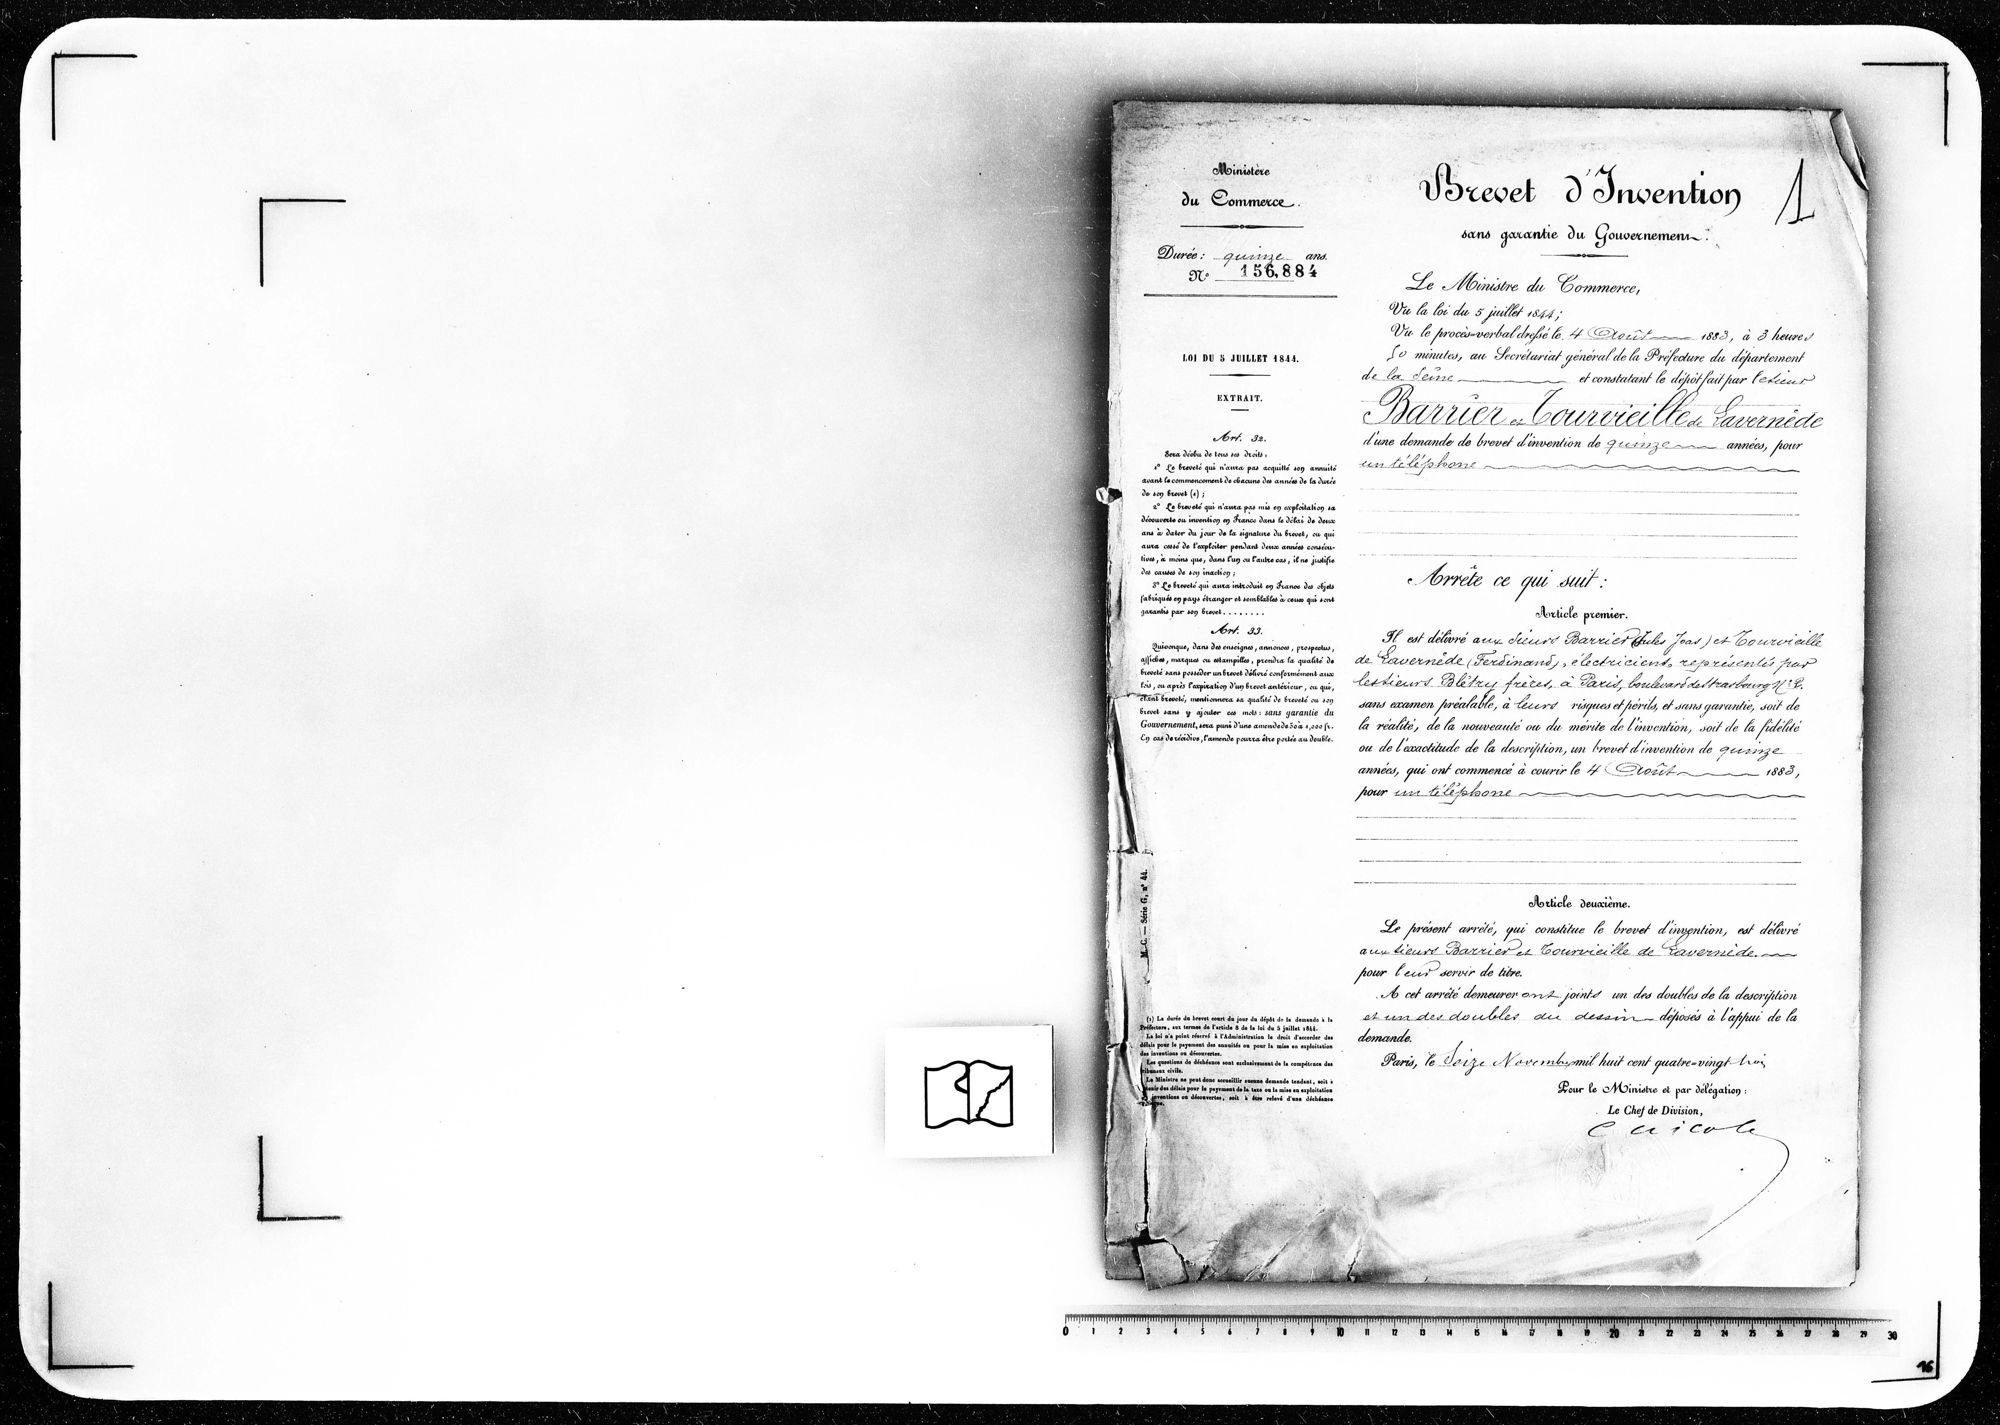 Ministère
du Commerce.
Durée: quinze ans.
N° 156,884
LOI DU 5 JUILLET 1844.
EXTRAIT.
Art. 32.
Sera déchu de tous ses droits:
1° Le breveté qui n'aura pas acquitté son annuité
avant le commencement de chacune des années de la durée
de son brevet (1);
2° Le breveté qui n'aura pas mis en exploitation sa
découverte ou invention en France dans le délai de deux
ans à dater du jour de la signature du brevet, ou qui
aura cessé de l'exploiter pendant deux années consécu-
tives, à moins que, dans l'un ou l'autre cas, il ne justifie
des causes de son inaction;
3° Le breveté qui aura introduit en France des objets
fabriqués en pays étranger et semblables à ceux qui sont
garantis par son brevet........
Art. 33.
Quiconque, dans des enseignes, annonces, prospectus,
affiches, marques ou estampilles, prendra la qualité de
breveté sans posséder un brevet délivré conformément aux
lois, ou après l'expiration d'un brevet antérieur, ou qui,
étant breveté, mentionnera sa qualité de breveté ou son
brevet sans y ajouter ces mots: sans garantie du
Gouvernement, sera puni d'une amende de 50 à 1,000 fr.
En cas de récidive, l'amende pourra être portée au double.
M. C. — Série G, n° 44.
(1) La durée du brevet court du jour du dépôt de la demande à la
Préfecture, aux termes de l'article 8 de la loi du 5 juillet 1844.
La loi n'a point réservé à l'Administration le droit d'accorder des
délais pour le payement des annuités ou pour la mise en exploitation
des inventions ou découvertes.
Les questions de déchéance sont exclusivement de la compétence des
tribunaux civils.
Le Ministre ne peut donc accueillir aucune demande tendant, soit à
obtenir des délais pour le payement de la taxe ou la mise en exploitation
des inventions ou découvertes, soit à être relevé d'une déchéance
Brevet d'Invention
1
sans garantie du Gouvernement.
Le Ministre du Commerce,
Vu la loi du 5 juillet 1844;
Vu le procès-verbal dressé le 4 Août 1883, à 3 heures
50 minutes, au Secrétariat général de la Préfecture du département
de la Seine et constatant le dépôt fait par les sieurs
Barrier et Tourvieille de Lavernède
d'une demande de brevet d'invention de quinze années, pour
un téléphone
Arrête ce qui suit:
Article premier.
Il est délivré aux sieurs Barrier (Jules Jean) et Tourvieille
de Lavernède (Ferdinand), électriciens, représentés par
les sieurs Blétry frères, à Paris, boulevard de Strasbourg N° 2.
sans examen préalable, à leurs risques et périls, et sans garantie, soit de
la réalité, de la nouveauté ou du mérite de l'invention, soit de la fidélité
ou de l'exactitude de la description, un brevet d'invention de quinze
années, qui ont commencé à courir le 4 Août 1883,
pour un téléphone
Article deuxième.
Le présent arrêté, qui constitue le brevet d'invention, est délivré
aux sieurs Barrier et Tourvieille de Lavernède.
pour leur servir de titre.
A cet arrêté demeureront joints un des doubles de la description
et un des doubles du dessin déposés à l'appui de la
demande.
Paris, le Seize Novembre mil huit cent quatre-vingt-trois
Pour le Ministre et par délégation:
Le Chef de Division,
0 1 2 3 4 5 6 7 8 9 10 11 12 13 14 15 16 17 18 19 20 21 22 23 24 25 26 27 28 29 30
16